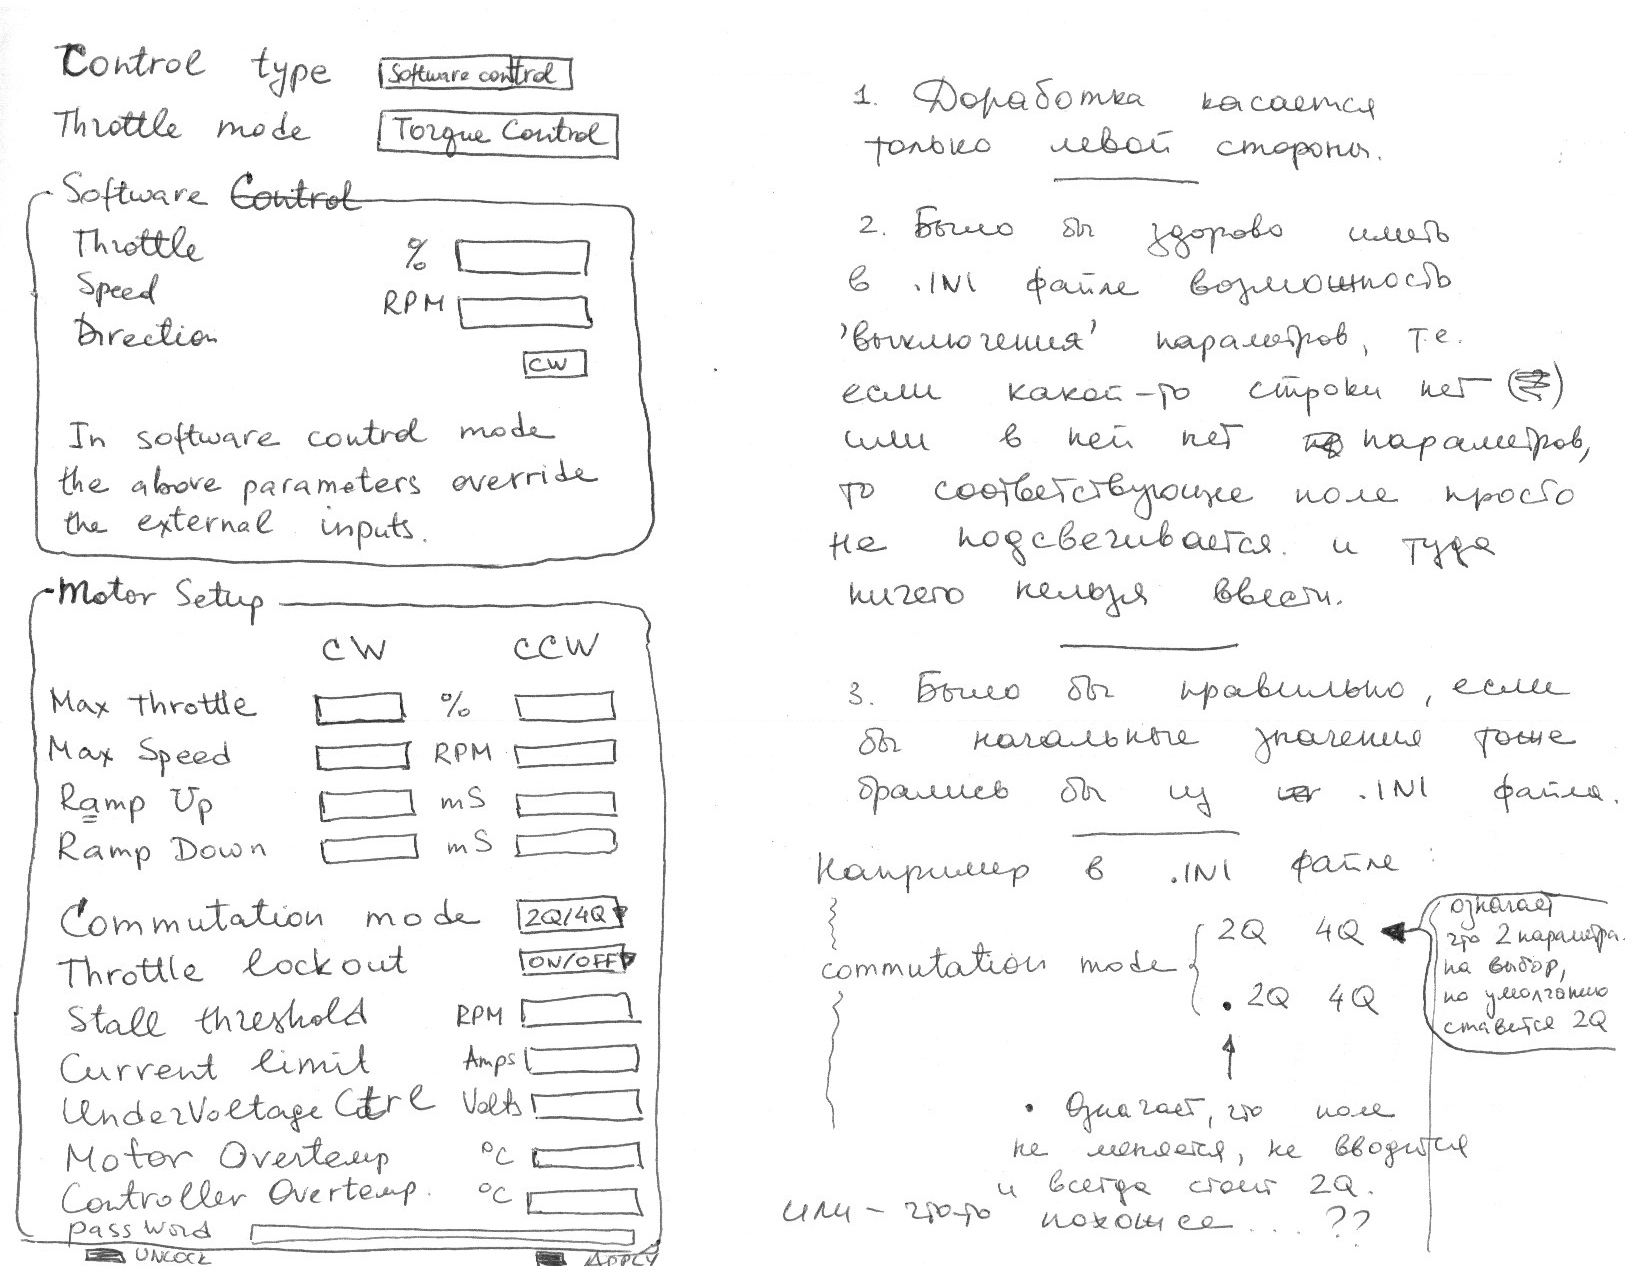 Control type Software control
Throttle mode Torque Control
Software Control
Throttle % 
Speed RPM
Direction
CW
In software control mode
the above parameters override
the external inputs.
Motor Setup
CW CCW
Max throttle %
Max Speed RPM
Ramp Up mS
Ramp Down mS
Commutation mode 2Q/4Q
Throttle lockout ON/OFF
Stall threshold RPM
Current limit Amps
UnderVoltage Ctrl Volts
Motor Overtemp °C
Controller Overtemp. °C
password
UNLOCK APPLY
1. Доработка касается
только левой стороны.
2. Было бы здорово иметь
в .INI файле возможность
'выключения' параметров, т.е.
если какой-то строки нет
или в ней нет параметров,
то соответствующее поле просто
не подсвечивается. и туда
ничего нельзя ввести.
3. Было бы правильно, если
бы начальные значения тоже
брались бы из .INI файла.
Например в .INI файле:
commutation mode { 2Q 4Q
• 2Q 4Q
означает
что 2 параметра
на выбор,
по умолчанию
ставится 2Q
• Означает, что поле
не меняется, не вводится
и всегда стоит 2Q.
или - что-то похожее... ??